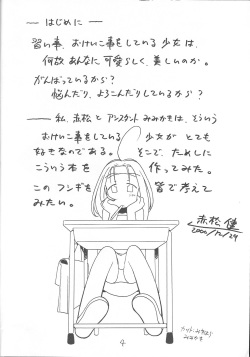 ── はじめに ──
習い事、おけいこ事をしている少女は、
何故あんなに可愛らしく、美しいのか。
がんばっているから？
悩んだり、よろこんだりしているから？
── 私、赤松とアシスタントみみかきは、そういう
おけいこ事をしている少女がとても
好きなのである。そこで、ためしに
こういう本を作ってみた。
このフシギを皆で考えて
みたい。
赤松 健
2000/12/29
カット・みみかき
4